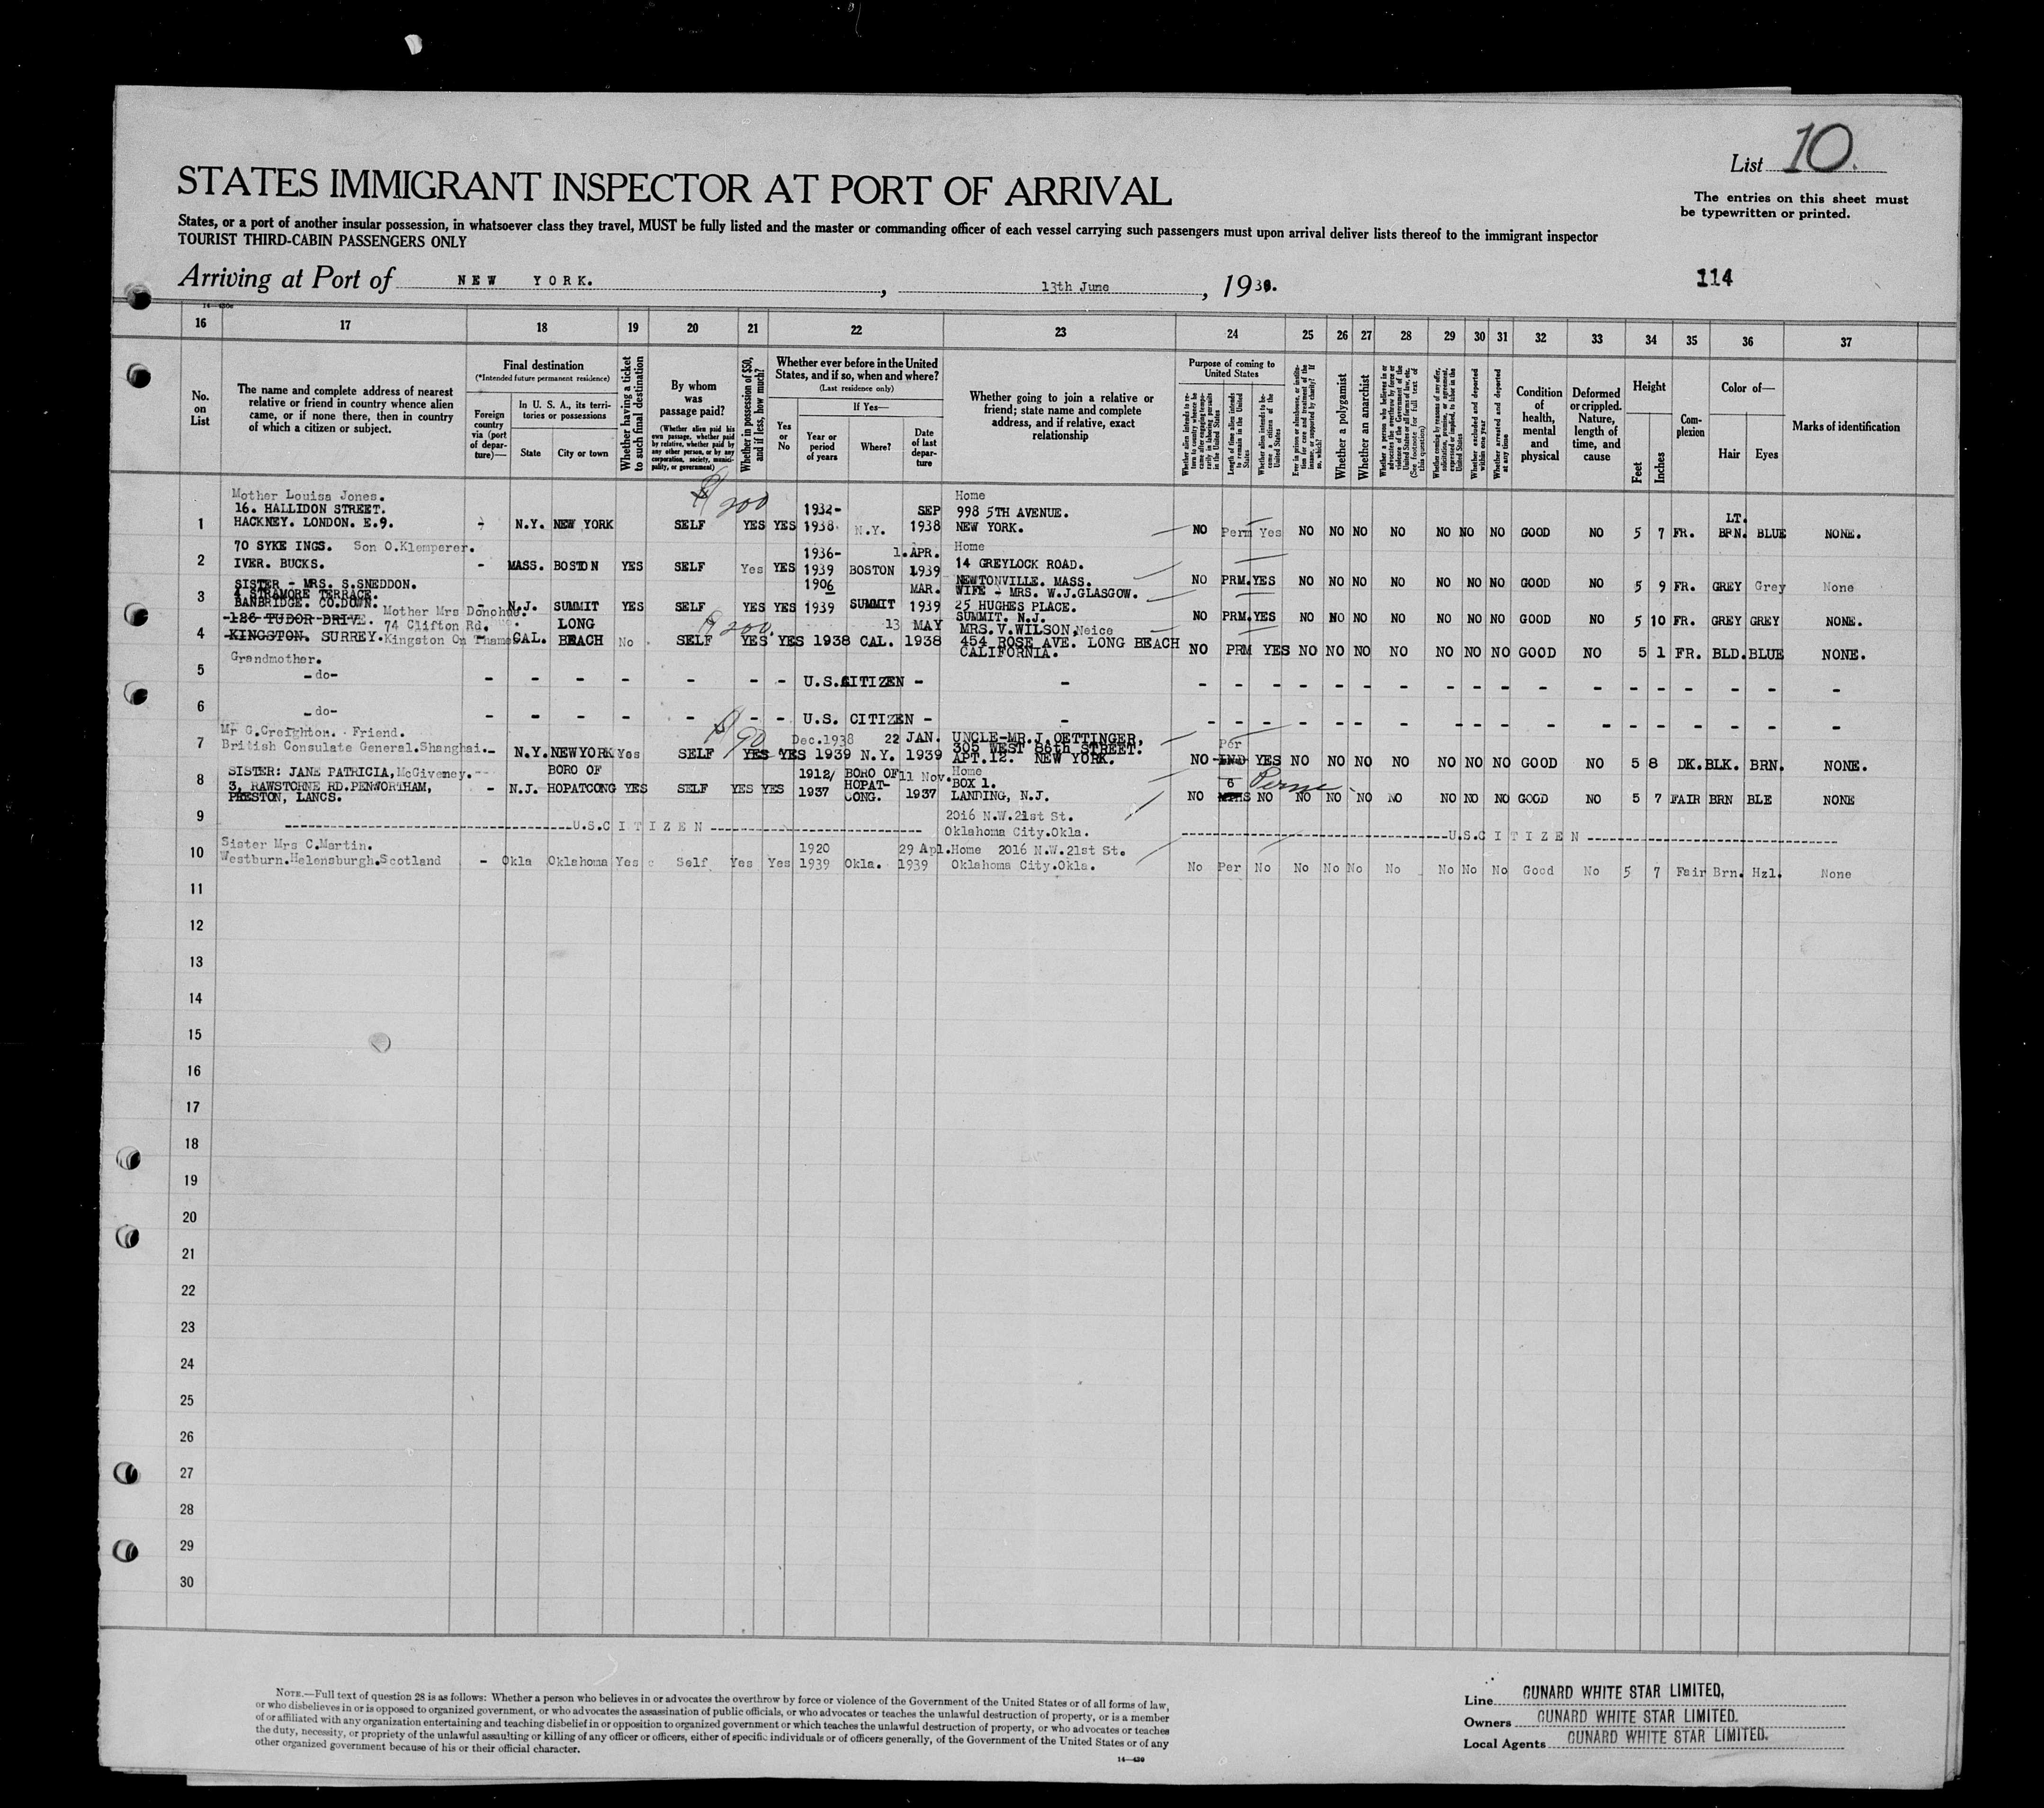 List 10.
STATES IMMIGRANT INSPECTOR AT PORT OF ARRIVAL
The entries on this sheet must
be typewritten or printed.
States, or a port of another insular possession, in whatsoever class they travel, MUST be fully listed and the master or commanding officer of each vessel carrying such passengers must upon arrival deliver lists thereof to the immigrant inspector
TOURIST THIRD-CABIN PASSENGERS ONLY
Arriving at Port of NEW YORK. , 13th June , 1939.
114
16 17 18 19 20 21 22 23 24 25 26 27 28 29 30 31 32 33 34 35 36 37
No. on List
The name and complete address of nearest
relative or friend in country whence alien
came, or if none there, then in country
of which a citizen or subject.
Final destination
(*Intended future permanent residence)
Foreign country via (port of departure)—
In U. S. A., its territories or possessions
State
City or town
Whether having a ticket to such final destination
By whom was passage paid?
(Whether alien paid his own passage, whether paid by relative, whether paid by any other person, or by any corporation, society, municipality, or government)
Whether in possession of $50, and if less, how much?
Whether ever before in the United States, and if so, when and where?
(Last residence only)
Yes or No
If Yes—
Year or period of years
Where?
Date of last departure
Whether going to join a relative or
friend; state name and complete
address, and if relative, exact
relationship
Purpose of coming to United States
Length of time alien intends to remain in the United States
Whether alien intends to become a citizen of the United States
Whether a polygamist
Whether an anarchist
Whether excluded and deported within one year
Whether arrested and deported at any time
Condition of health, mental and physical
Deformed or crippled. Nature, length of time, and cause
Height
Feet
Inches
Complexion
Color of—
Hair
Eyes
Marks of identification
Mother Louisa Jones. $/200 Home
16. HALLIDON STREET. 1932- SEP 998 5TH AVENUE. LT.
1 HACKNEY. LONDON. E.9. - N.Y. NEW YORK SELF YES YES 1938 N.Y. 1938 NEW YORK. NO Perm Yes NO NO NO NO NO NO NO GOOD NO 5 7 FR. BRN. BLUE NONE.
70 SYKE INGS. Son O.Klemperer. 1936- 1.APR. Home
2 IVER. BUCKS. - MASS. BOSTON YES SELF Yes YES 1939 BOSTON 1939 14 GREYLOCK ROAD.
NEWTONVILLE. MASS. NO PRM. YES NO NO NO NO NO NO NO GOOD NO 5 9 FR. GREY Grey None
SISTER - MRS. S.SNEDDON. 1906 MAR. WIFE - MRS. W.J.GLASGOW.
3 4 STRAMORE TERRACE.
BANBRIDGE. CO.DOWN. - N.J. SUMMIT YES SELF YES YES 1939 SUMMIT 1939 25 HUGHES PLACE.
SUMMIT. N.J. NO PRM. YES NO NO NO NO NO NO NO GOOD NO 5 10 FR. GREY GREY NONE.
Mother Mrs Donohue.
126 TUDOR DRIVE. 74 Clifton Rd. LONG 200. 13 MAY MRS. V. WILSON, Neice
4 KINGSTON. SURREY. Kingston On Thames CAL. BEACH No SELF YES YES 1938 CAL. 1938 454 ROSE AVE. LONG BEACH
CALIFORNIA. NO PRM YES NO NO NO NO NO NO NO GOOD NO 5 1 FR. BLD. BLUE NONE.
Grandmother.
5 -do- - - - - - - - U.S. CITIZEN - -
6 -do- - - - - - - - U.S. CITIZEN - -
Mr G.Creighton. Friend. $/90 Dec.1938 22 JAN. UNCLE-MR.J.OETTINGER, Per
7 British Consulate General.Shanghai. - N.Y. NEW YORK Yes SELF YES YES 1939 N.Y. 1939 305 WEST 86th STREET.
APT.12. NEW YORK. NO IND YES NO NO NO NO NO NO NO GOOD NO 5 8 DK. BLK. BRN. NONE.
SISTER: JANE PATRICIA, McGiveney. BORO OF 1912/ BORO OF 11 Nov. Home
8 3, RAWSTORNE RD.PENWORTHAM, - N.J. HOPATCONG YES SELF YES YES 1937 HOPATCONG. 1937 BOX 1. 6 Perm
PRESTON, LANCS. LANDING, N.J. NO MTHS NO NO NO NO NO NO NO NO GOOD NO 5 7 FAIR BRN BLE NONE
9 U.S.CITIZEN 2016 N.W.21st St.
Oklahoma City.Okla. U.S.CITIZEN
Sister Mrs C.Martin. 1920 29 Apl. Home 2016 N.W.21st St.
10 Westburn.Helensburgh.Scotland - Okla Oklahoma Yes Self Yes Yes 1939 Okla. 1939 Oklahoma City.Okla. No Per No No No No No No No No Good No 5 7 Fair Brn. Hzl. None
11
12
13
14
15
16
17
18
19
20
21
22
23
24
25
26
27
28
29
30
NOTE.—Full text of question 28 is as follows: Whether a person who believes in or advocates the overthrow by force or violence of the Government of the United States or of all forms of law,
or who disbelieves in or is opposed to organized government, or who advocates the assassination of public officials, or who advocates or teaches the unlawful destruction of property, or is a member
of or affiliated with any organization entertaining and teaching disbelief in or opposition to organized government or which teaches the unlawful destruction of property, or who advocates or teaches
the duty, necessity, or propriety of the unlawful assaulting or killing of any officer or officers, either of specific individuals or of officers generally, of the Government of the United States or of any
other organized government because of his or their official character.
14—430
Line CUNARD WHITE STAR LIMITED,
Owners CUNARD WHITE STAR LIMITED.
Local Agents CUNARD WHITE STAR LIMITED.